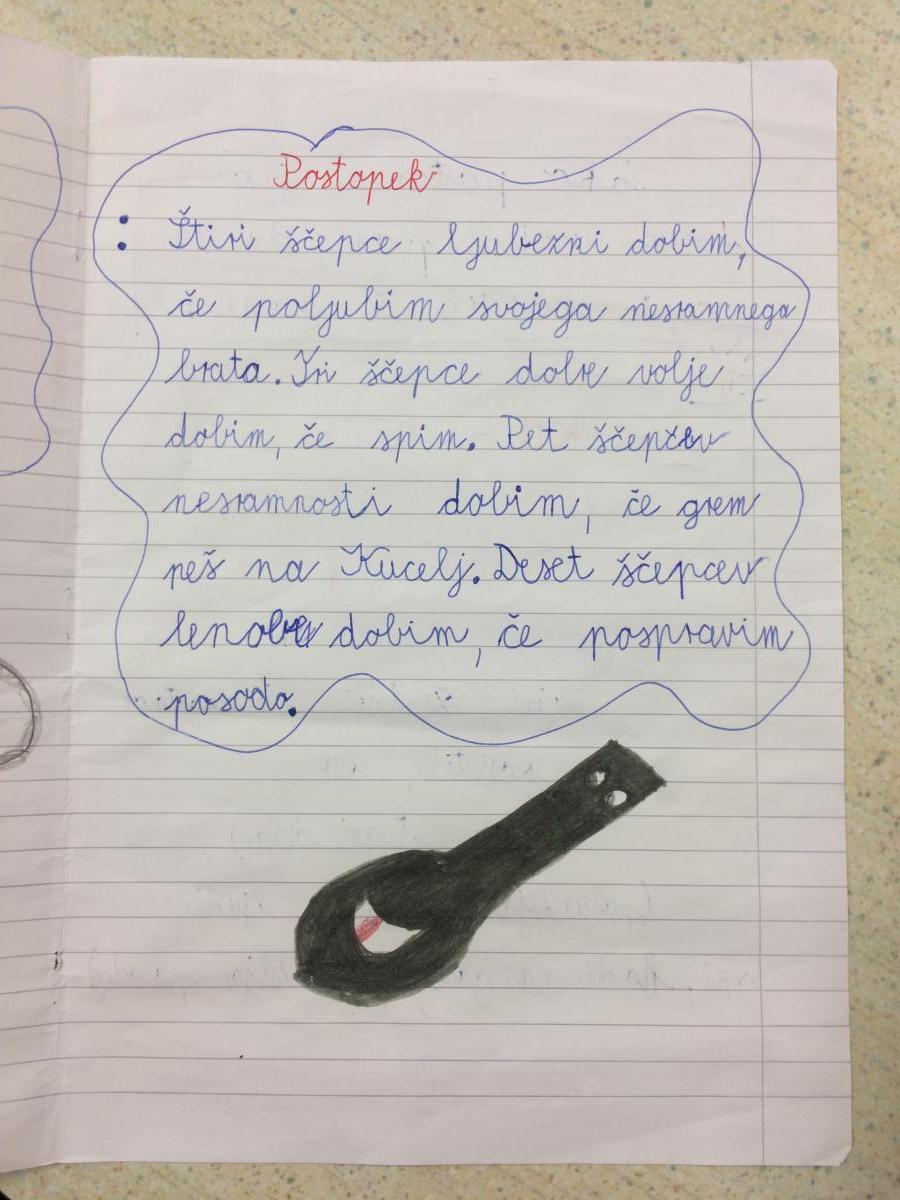 Postopek
: Štiri ščepce ljubezni dobim,
če poljubim svojega nesramnega
brata. Tri ščepce dobre volje
dobim, če spim. Pet ščepcev
nesramnosti dobim, če grem
peš na Kucelj. Deset ščepcev
lenobe dobim, če pospravim
posodo.